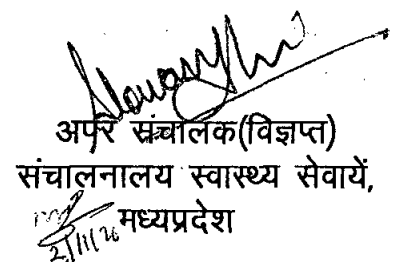 अपर संचालक(विज्ञप्त)
संचालनालय स्वास्थ्य सेवायें,
मध्यप्रदेश